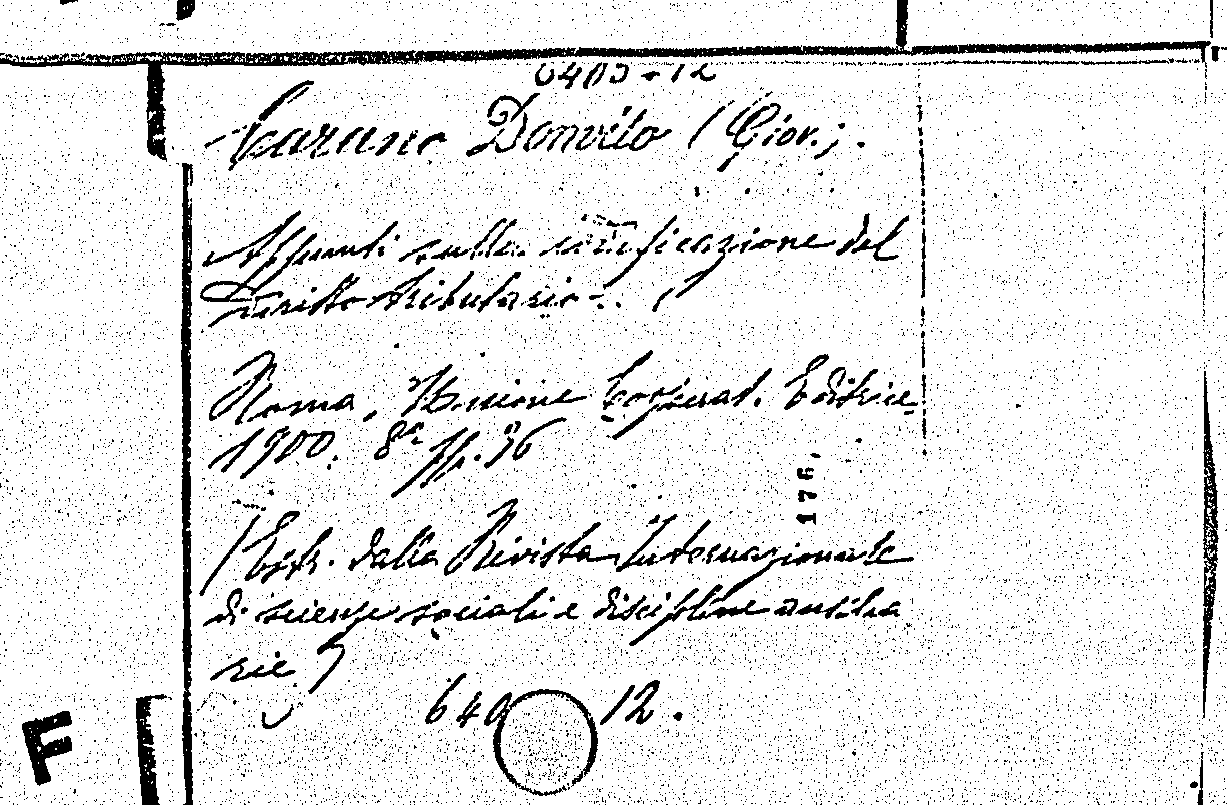 6405-12
Carano Donvito (Giov.).
Appunti sulla codificazione del
Diritto tributario.
Roma, Unione Cooperat. Editrice
1900. 8° pp. 36
176
(Estr. dalla Rivista Internazionale
di scienze sociali e discipline ausilia
rie)
640 12.
F